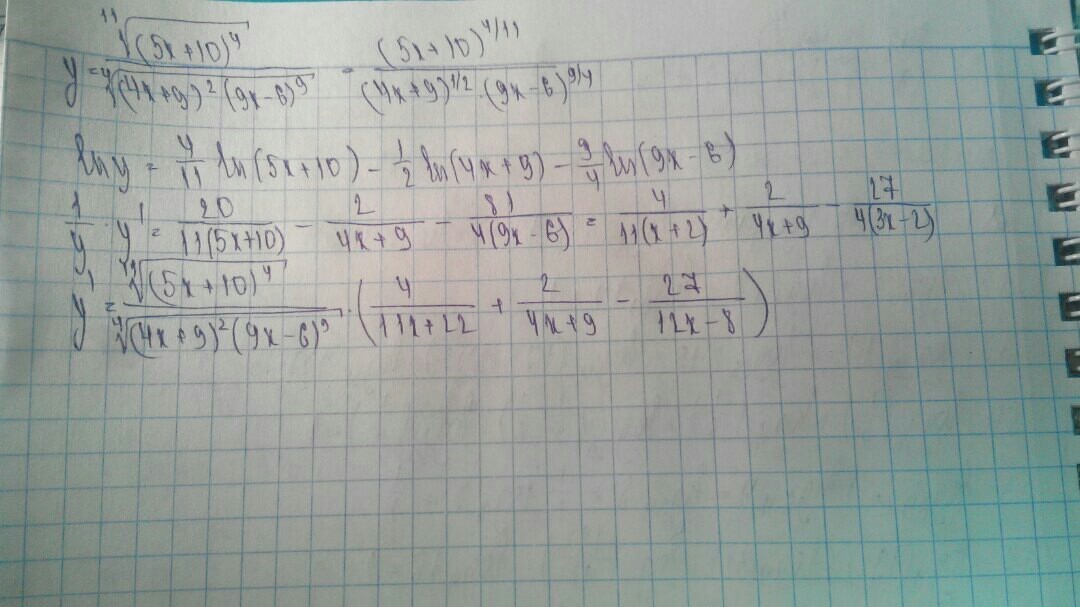 y = \frac{\sqrt[11]{(5x+10)^4}}{\sqrt[4]{(4x+9)^2(9x-6)^9}} = \frac{(5x+10)^{4/11}}{(4x+9)^{1/2} \cdot (9x-6)^{9/4}}
ln y = \frac{4}{11} ln(5x+10) - \frac{1}{2} ln(4x+9) - \frac{9}{4} ln(9x-6)
\frac{1}{y} \cdot y' = \frac{20}{11(5x+10)} - \frac{2}{4x+9} - \frac{81}{4(9x-6)} = \frac{4}{11(x+2)} + \frac{2}{4x+9} - \frac{27}{4(3x-2)}
y' = \frac{\sqrt[11]{(5x+10)^4}}{\sqrt[4]{(4x+9)^2(9x-6)^9}} \cdot (\frac{4}{11x+22} + \frac{2}{4x+9} - \frac{27}{12x-8})